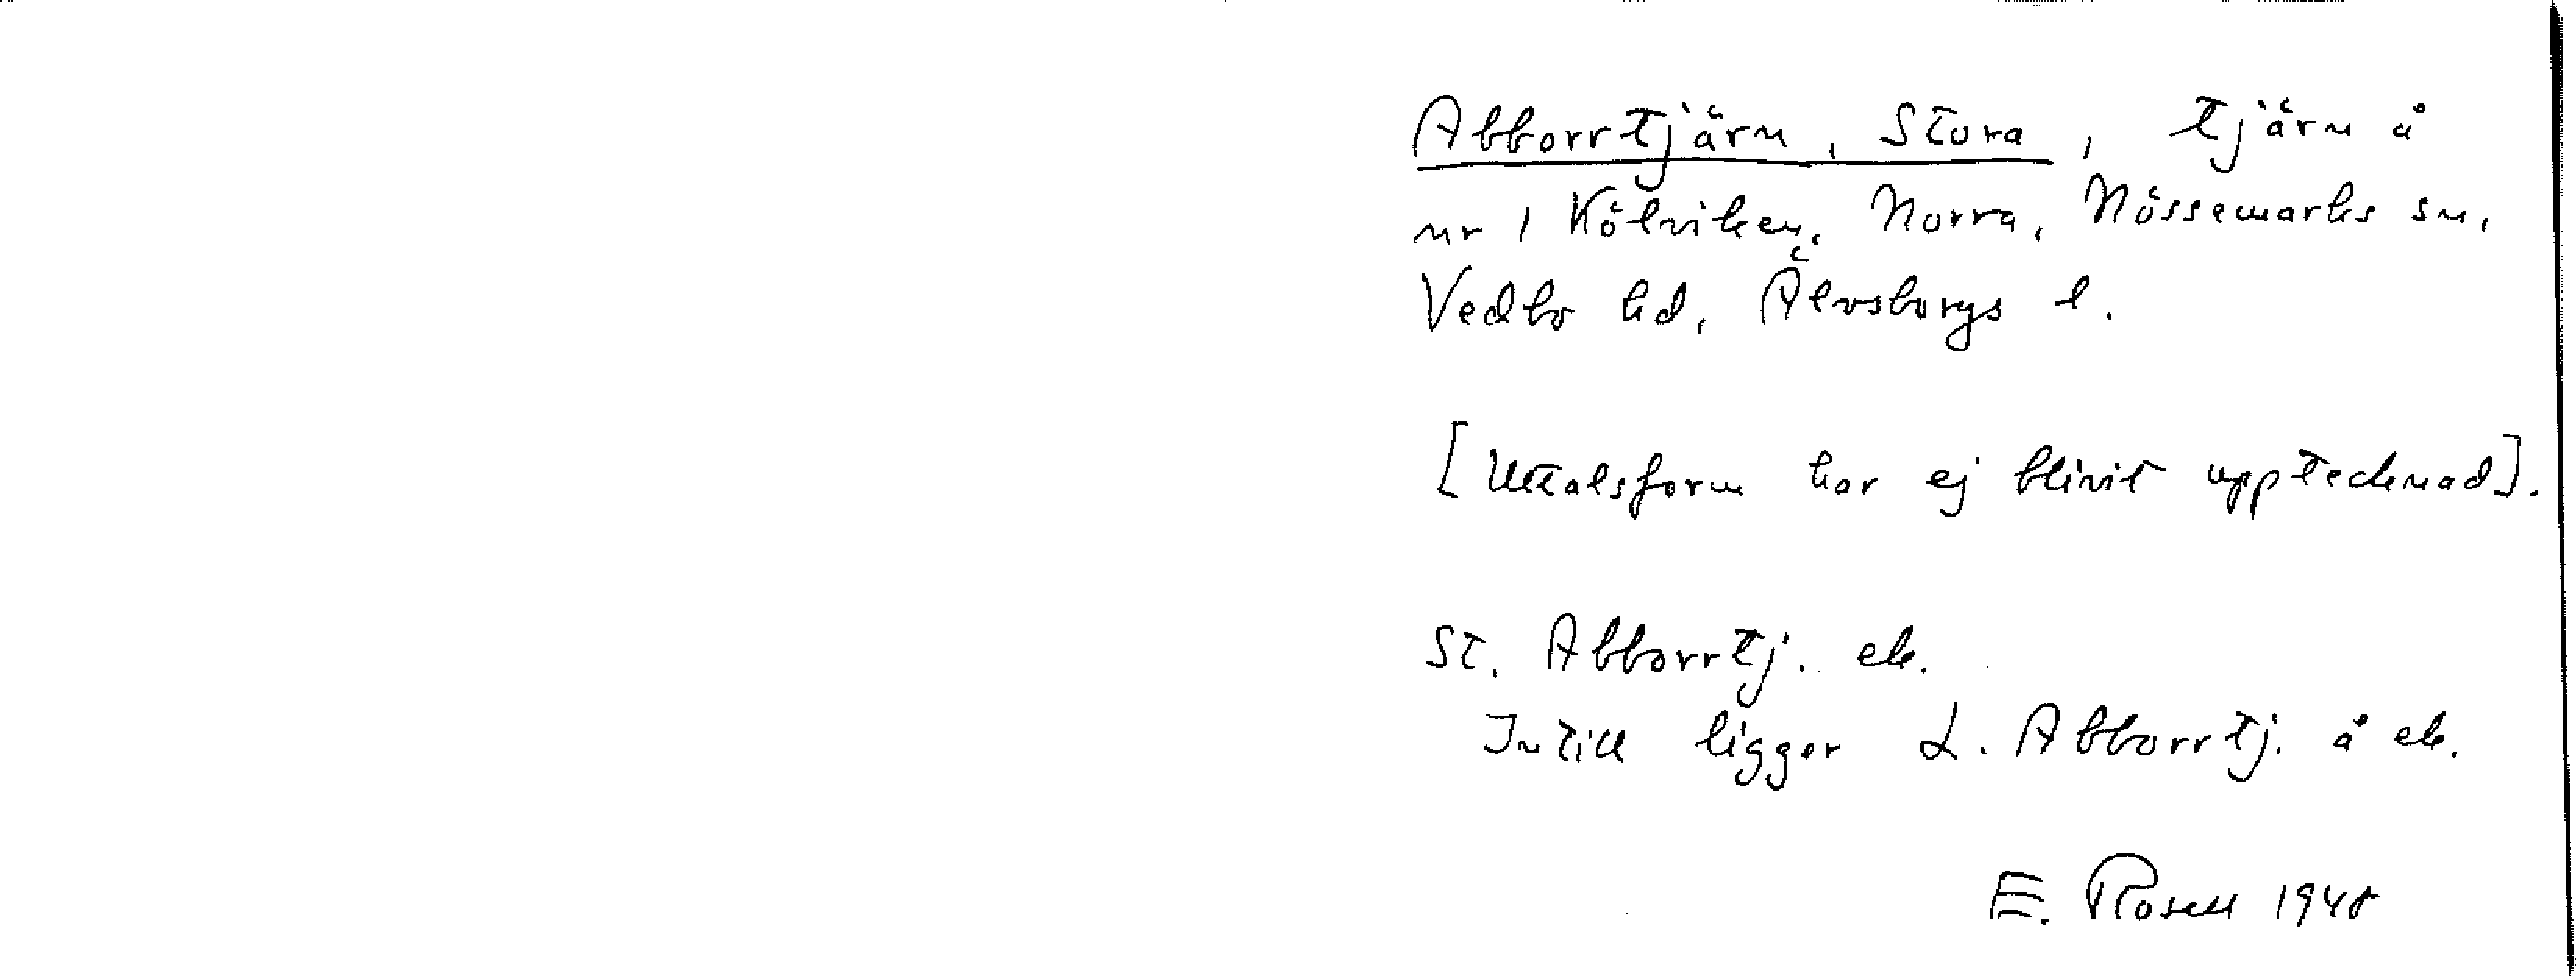 Abborrtjärn, Stora, tjärn å
nr 1 Kölviken, Norra, Nössemarks sn,
Vedbo hd, Älvsborgs l.
[Uttalsform har ej blivit upptecknad].
St. Abborrtj. ek.
Intill ligger L. Abborrtj. å ek.
E. Rosell 1948